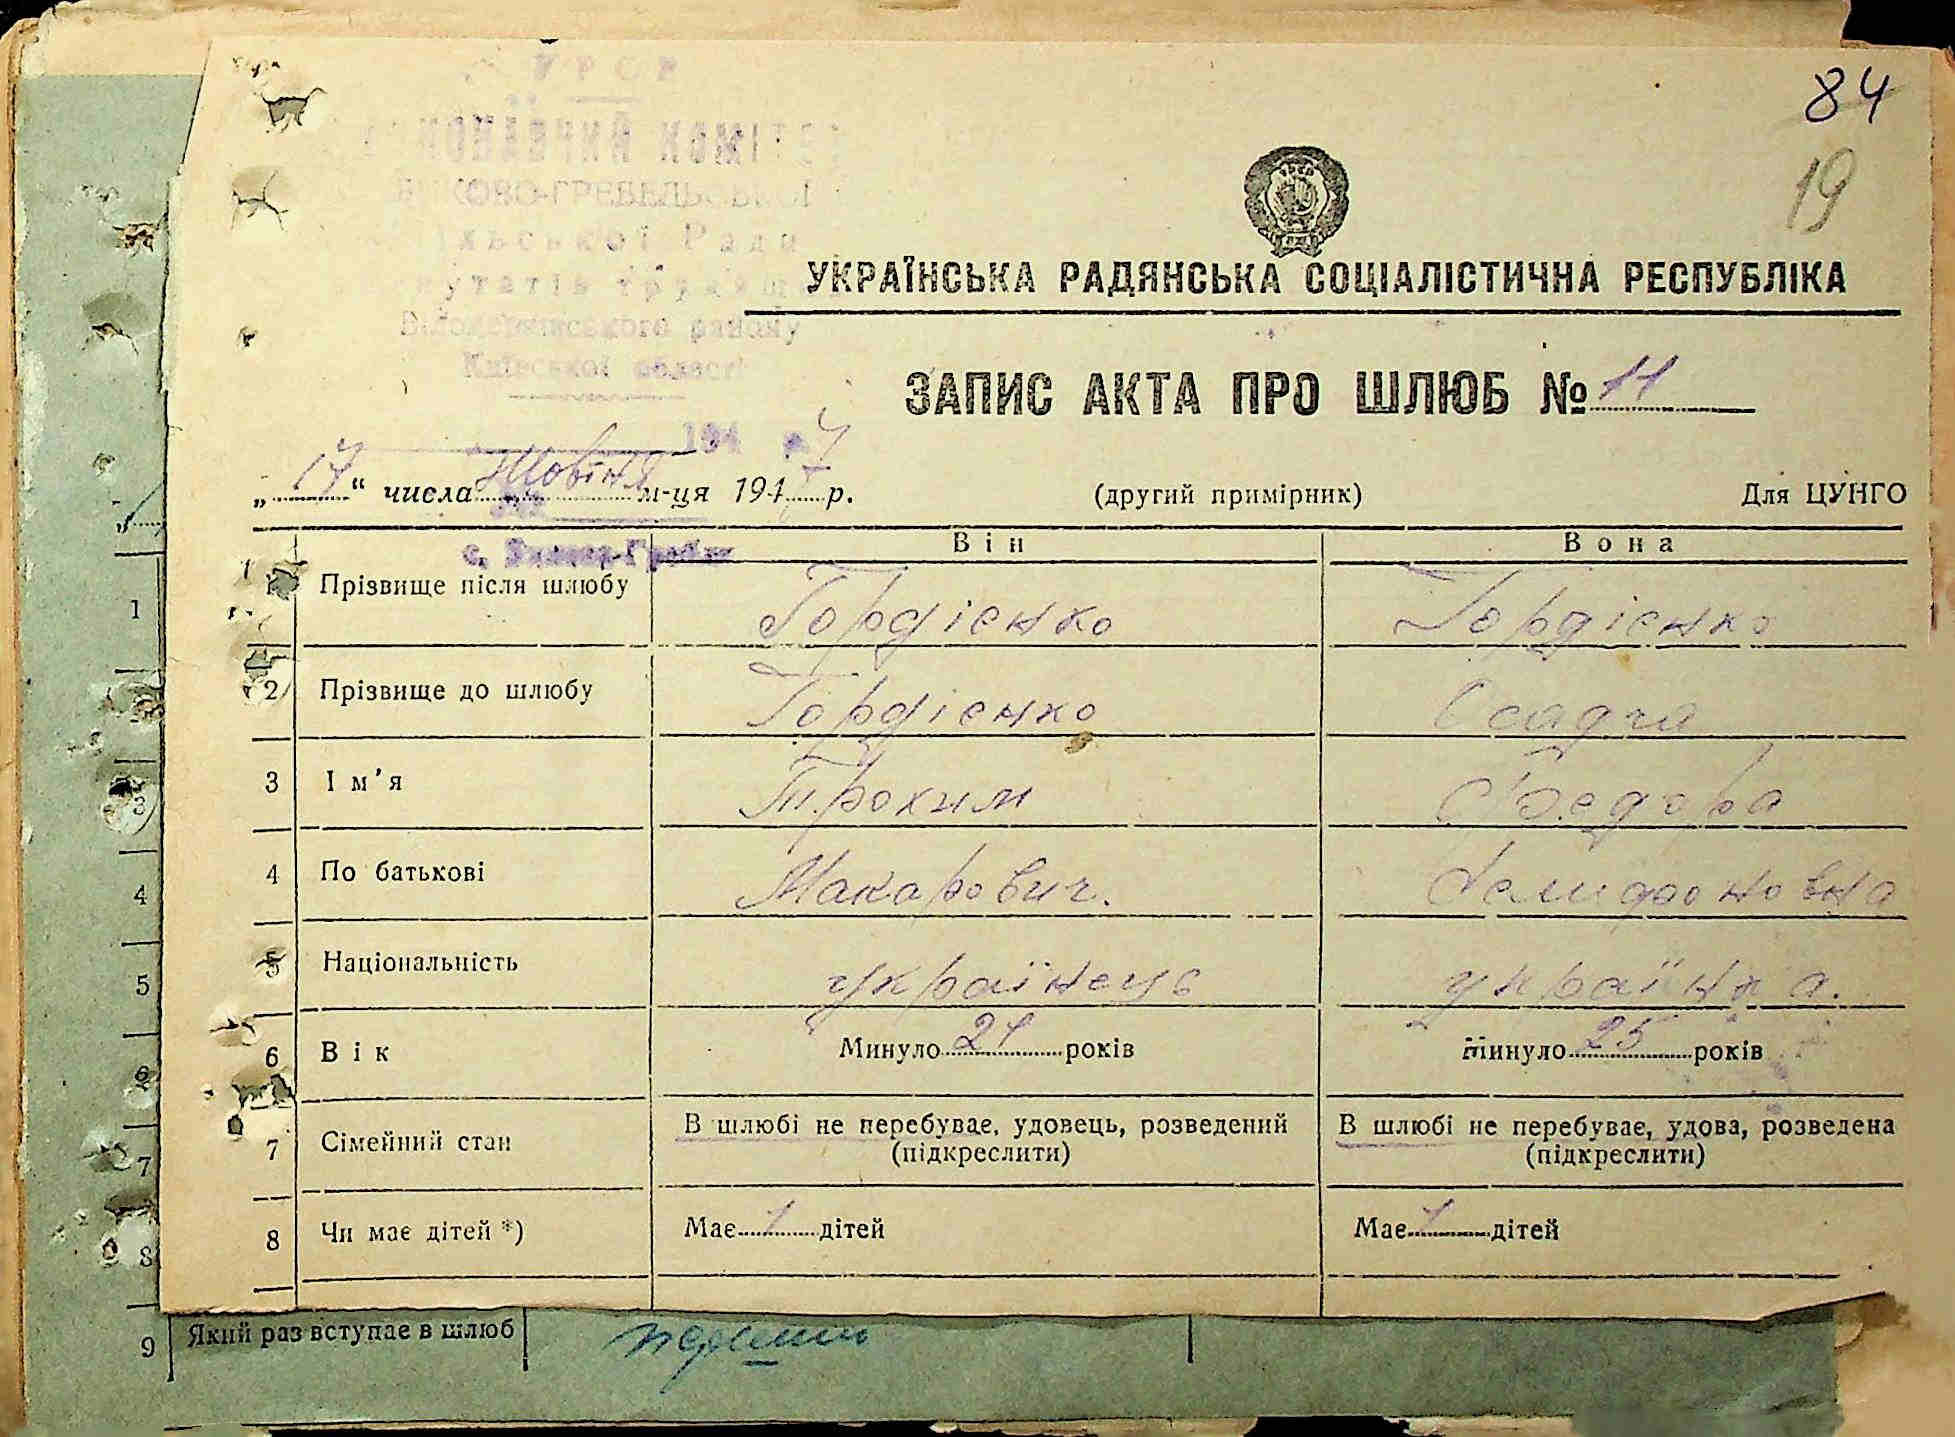 84
19
УРСР
ВИКОНАВЧИЙ КОМІТЕТ
БИКОВО-ГРЕБЕЛЬСЬКОЇ
Сільської Ради
депутатів трудящих
Білоцерківського району
Київської області
УКРАЇНСЬКА РАДЯНСЬКА СОЦІАЛІСТИЧНА РЕСПУБЛІКА
ЗАПИС АКТА ПРО ШЛЮБ № 11
194 р. 7
„17“ числа Жовтня м-ця 194 р. (другий примірник) Для ЦУНГО
№
с. Бикова-Гребля
Він Вона
1 Прізвище після шлюбу Гордієнко Гордієнко
2 Прізвище до шлюбу Гордієнко Осадча
3 Ім'я Трохим Федора
4 По батькові Макарович. 
5 Національність українець українка.
6 Вік Минуло 21 років Минуло 25 років
7 Сімейний стан В шлюбі не перебуває, удовець, розведений (підкреслити) В шлюбі не перебуває, удова, розведена (підкреслити)
8 Чи має дітей *) Має дітей Має дітей
1
3
4
5
6
7
8
9 Який раз вступає в шлюб